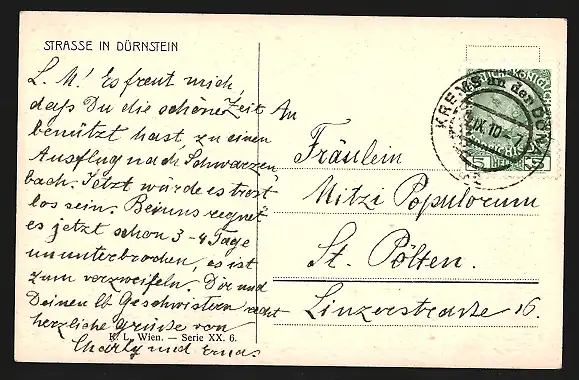 STRASSE IN DÜRNSTEIN
L. M! Es freut mich,
daß Du die schöne Zeit
benützt hast, zu einen
Ausflug nach Schwarzen
bach. Jetzt würde es trost
los sein. Bei uns regnet
es jetzt schon 3-4 Tage
ununterbrochen, es ist
zum verzweifeln. Dir und
Deinen lb Geschwistern recht
herzliche Grüsse von
Charly und Erna
K. L. Wien. — Serie XX. 6.
An
Fräulein
Mitzi Populorum
St. Pölten.
Linzerstrasse 16.
KREMS an der DONAU
IX 10
5 5